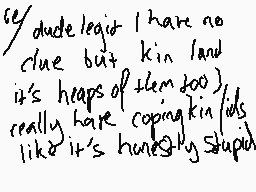 ce/
dude legit I have no
clue but kin land
it's heaps of them too)
really hate coping kin/ids
like it's honestly stupid